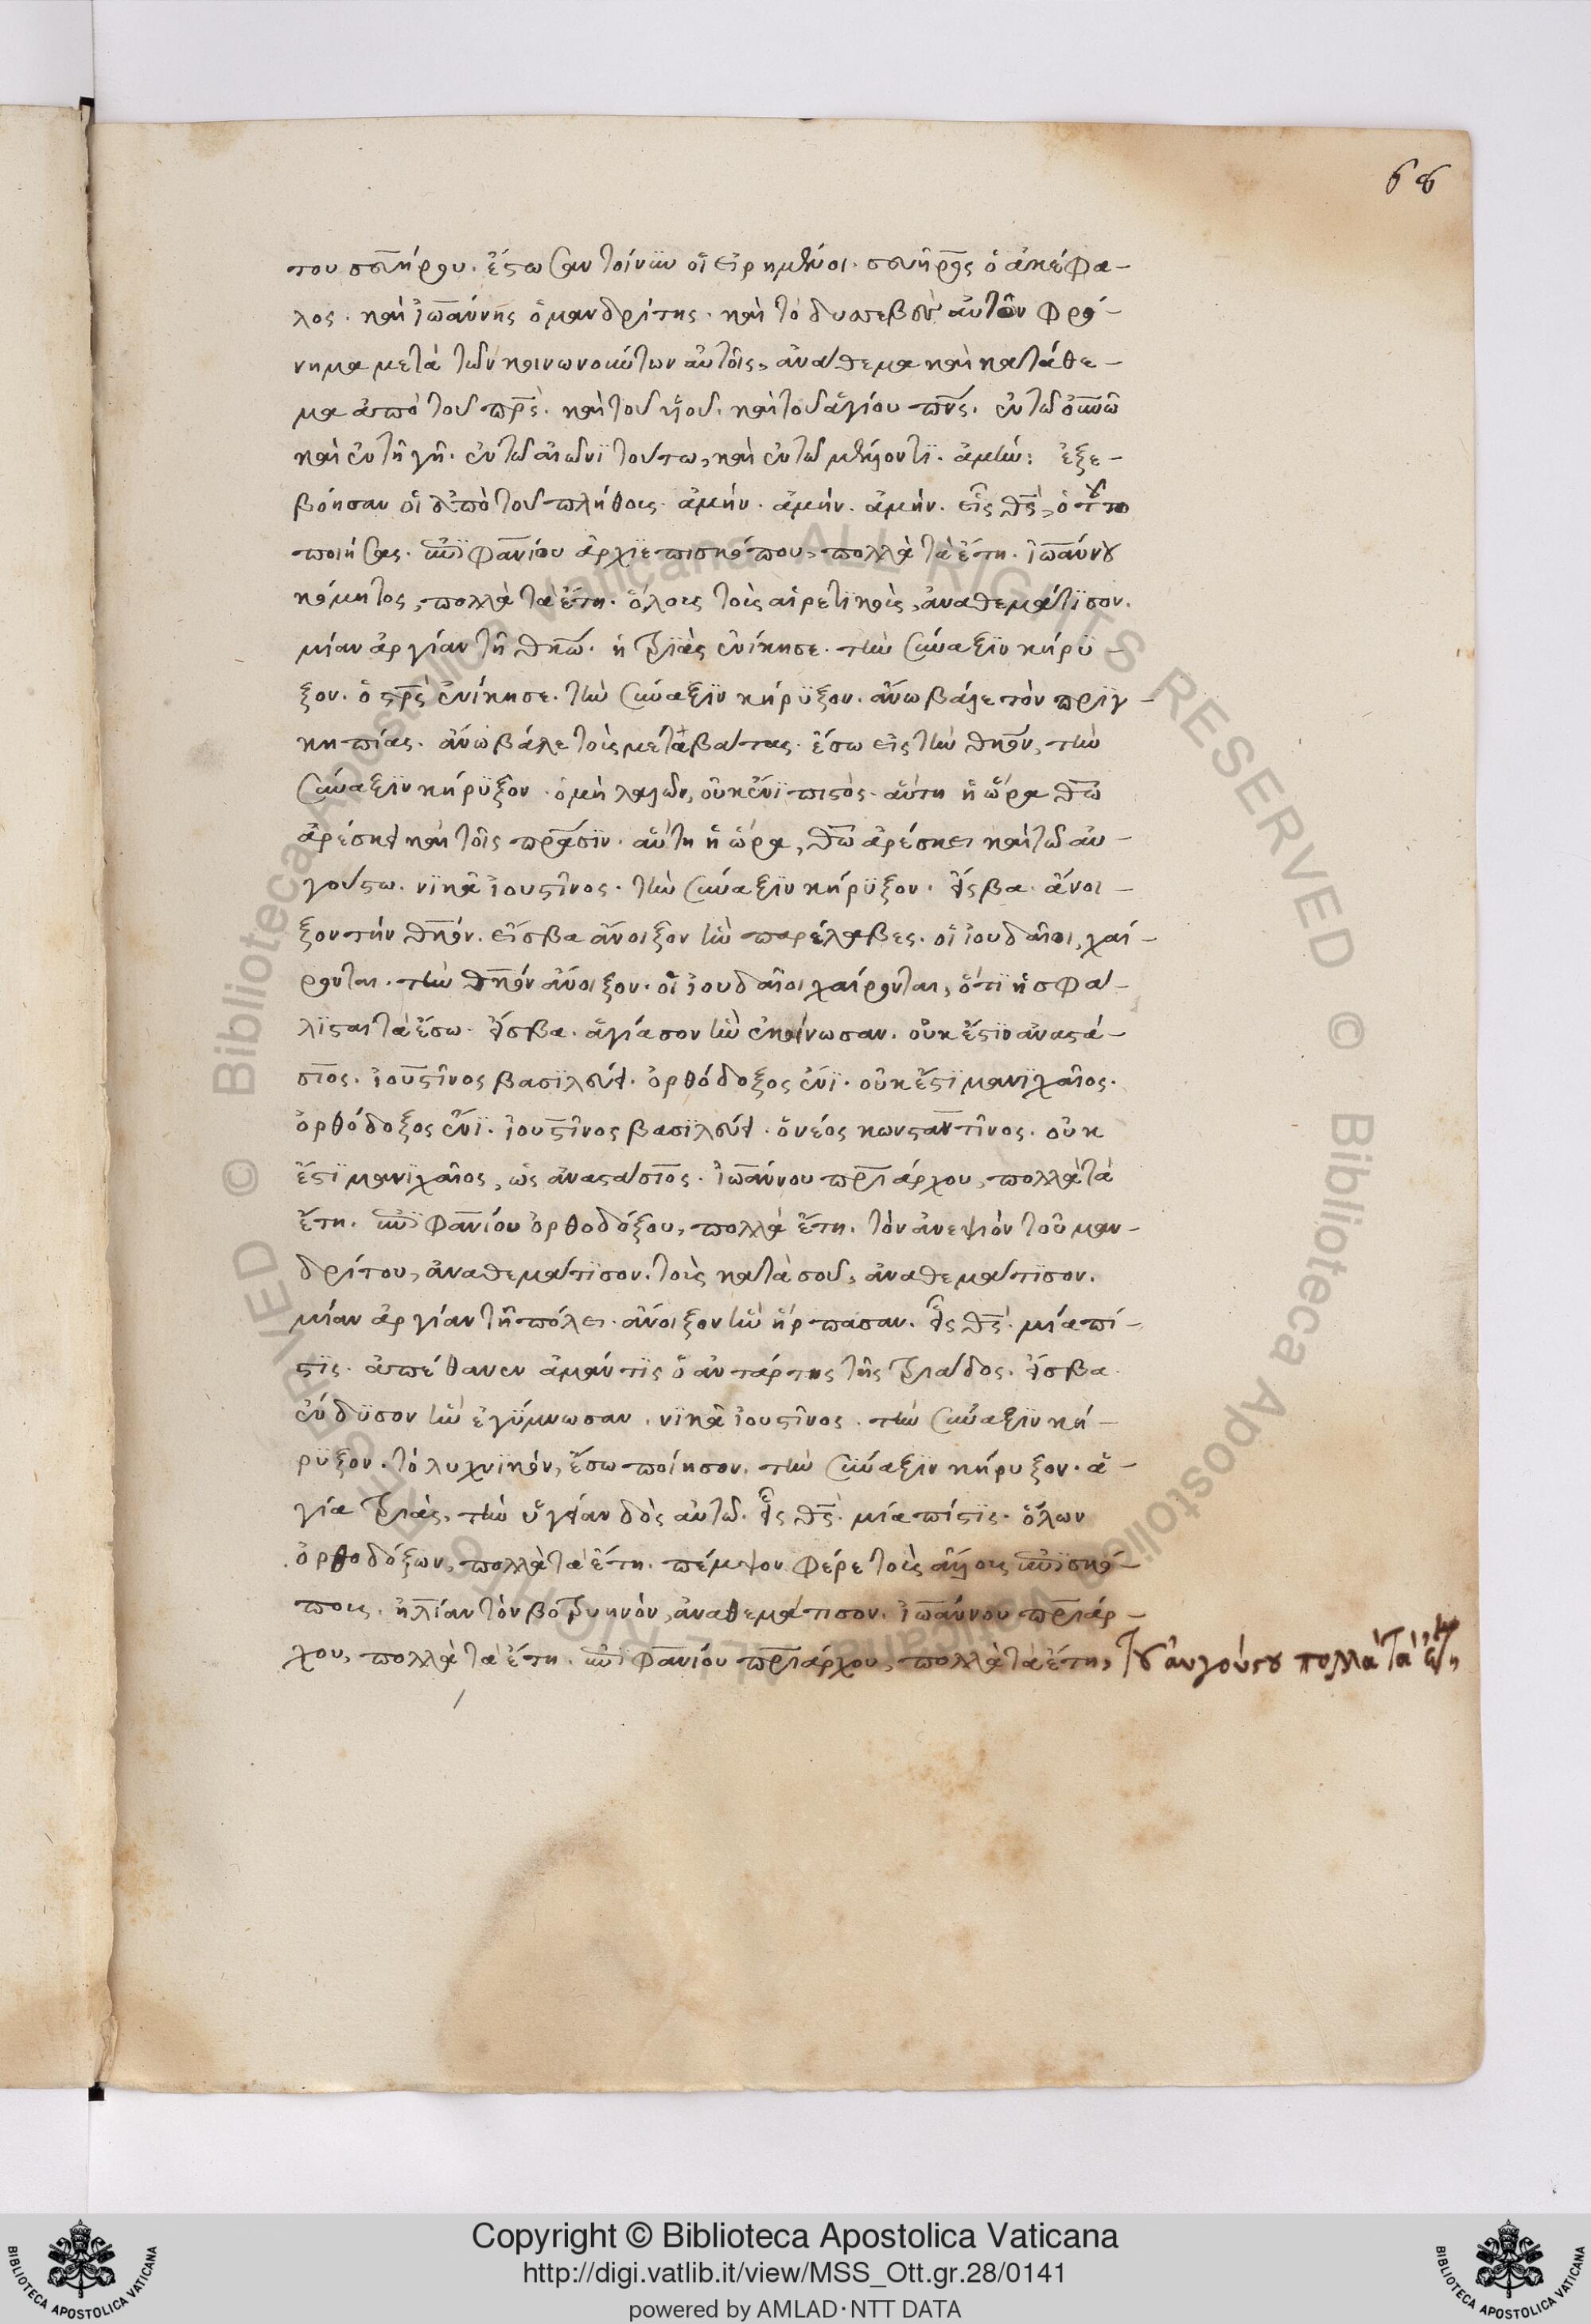 66
του σευήρου. ἔστωσαν τοίνυν οἱ εἰρημένοι. σευῆρος ὁ ἀκέφα-
λος. καὶ ἰωάννης ὁ μανδρίτης. καὶ τὸ δυσεβὲς αὐτῶν φρό-
νημα μετὰ τῶν κοινωνούντων αὐτοῖς, ἀνάθεμα καὶ κατάθε-
μα ἀπὸ τοῦ πρς. καὶ τοῦ υἱοῦ. καὶ τοῦ ἁγίου πνς. ἐν τῶ οὐνῶ
καὶ ἐν τῆ γῆ. ἐν τῶ αἰωνϊ τούτω, καὶ ἐν τῶ μέλλοντϊ. ἀμήν: ἐξε-
βόησαν οἱ ἀπὸ τοῦ πλήθους. ἀμήν. ἀμήν. ἀμήν. εἷς θς, ὁ τοῦτο
ποιήσας. ἐπϊφανίου ἀρχϊεπισκόπου, πολλὰ τὰ ἔτη. ἰωάννου
κόμητος, πολλὰ τὰ ἔτη. ὅλους τοὺς αἱρετϊκοὺς, ἀναθεμάτϊσον.
μίαν ἀργίαν τῆ θκω. ἡ τριὰς ἐνίκησε. τὴν σύναξϊν κήρϋ-
ξον. ὁ σρς ἐνίκησε. τὴν σύναξϊν κήρϋξον. ἄνω βάλε τὸν πρϊγ-
κηπίας. ἄνω βάλε τοὺς μεταβάτας. ἔσω εἰς τὴν θκον, τὴν
σύναξϊν κήρϋξον. ὁ μὴ λαλῶν, οὐκ ἔνϊ πιστὸς. αὕτη ἡ ὥρα θω
ἀρέσκει καὶ τοῖς πρασϊν. αὕτη ἡ ὥρα, θω ἀρέσκει καὶ τῶ αὐ-
γούστω. νϊκᾶ ἰουστῖνος. τὴν σύναξϊν κήρϋξον. εἴσβα. ἄνοι-
ξον τὴν θκον. εἴσβα ἄνοιξον ἣν παρέλαβες. οἱ ἰουδαῖοι, χαί-
ρονται. τὴν θκον ἄνοιξον. οἱ ἰουδαῖοι χαίρονται, ὅτϊ ἠσφά-
λϊσαι τὰ ἔσω. εἴσβα. ἁγίασον ἣν ἐκοίνωσαν. οὐκ ἔστϊν ἀναστά-
σιος. ἰουστῖνος βασϊλεύει. ὀρθόδοξος ἔνϊ. οὐκ ἔστϊ μανϊχαῖος.
ὀρθόδοξος ἔνϊ. ἰουστῖνος βασϊλεύει. ὁ νέος κωνσταντῖνος. οὐκ
ἔστϊ μανϊχαῖος, ὡς ἀναστάσιος. ἰωάννου πριάρχου, πολλὰ τὰ
ἔτη. ἐπϊφανίου ὀρθοδόξου, πολλὰ ἔτη. τὸν ἀνεψιὸν τοῦ μαν-
δρίτου, ἀναθεμάτϊσον. τοὺς κατὰ σοῦ, ἀναθεμάτϊσον.
μίαν ἀργίαν τῆ πόλει. ἄνοιξον ἣν ἥρπασαν. εἷς θς. μία πί-
στϊς. ἀπέθανεν ἀμάντϊς ὁ ἀντάρτης τῆς τριάδος. εἴσβα.
ἔνδϋσον ἣν ἐγϋμνωσαν. νϊκᾶ ἰουστῖνος. τὴν σύναξϊν κή-
ρϋξον. τὸ λυχνϊκόν, ἔσω ποίησον. τὴν σύναξϊν κήρυξον. ἁ-
γία τριὰς, τὴν ὑγείαν δὸς αὐτῶ. εἷς θς. μία πίστϊς. ὅλων
ὀρθοδόξων, πολλὰ τὰ ἔτη. πέμψον φέρε τοὺς ἄλλους ἐπϊσκό-
πους. ἠλίαν τὸν βοτρυηνὸν, ἀναθεμάτισον. ἰωάννου πριάρ-
χου, πολλὰ τὰ ἔτη. ἐπϊφανίου πριάρχου, πολλὰ τὰ ἔτη, τοῦ αὐγούστου πολλὰ τὰ ἔτη
Copyright © Biblioteca Apostolica Vaticana
http://digi.vatlib.it/view/MSS_Ott.gr.28/0141
powered by AMLAD·NTT DATA
BIBLIOTECA APOSTOLICA VATICANA
BIBLIOTECA APOSTOLICA VATICANA
© Biblioteca Apostolica Vaticana ALL RIGHTS RESERVED © Biblioteca Apostolica Vaticana ALL RIGHTS RESERVED